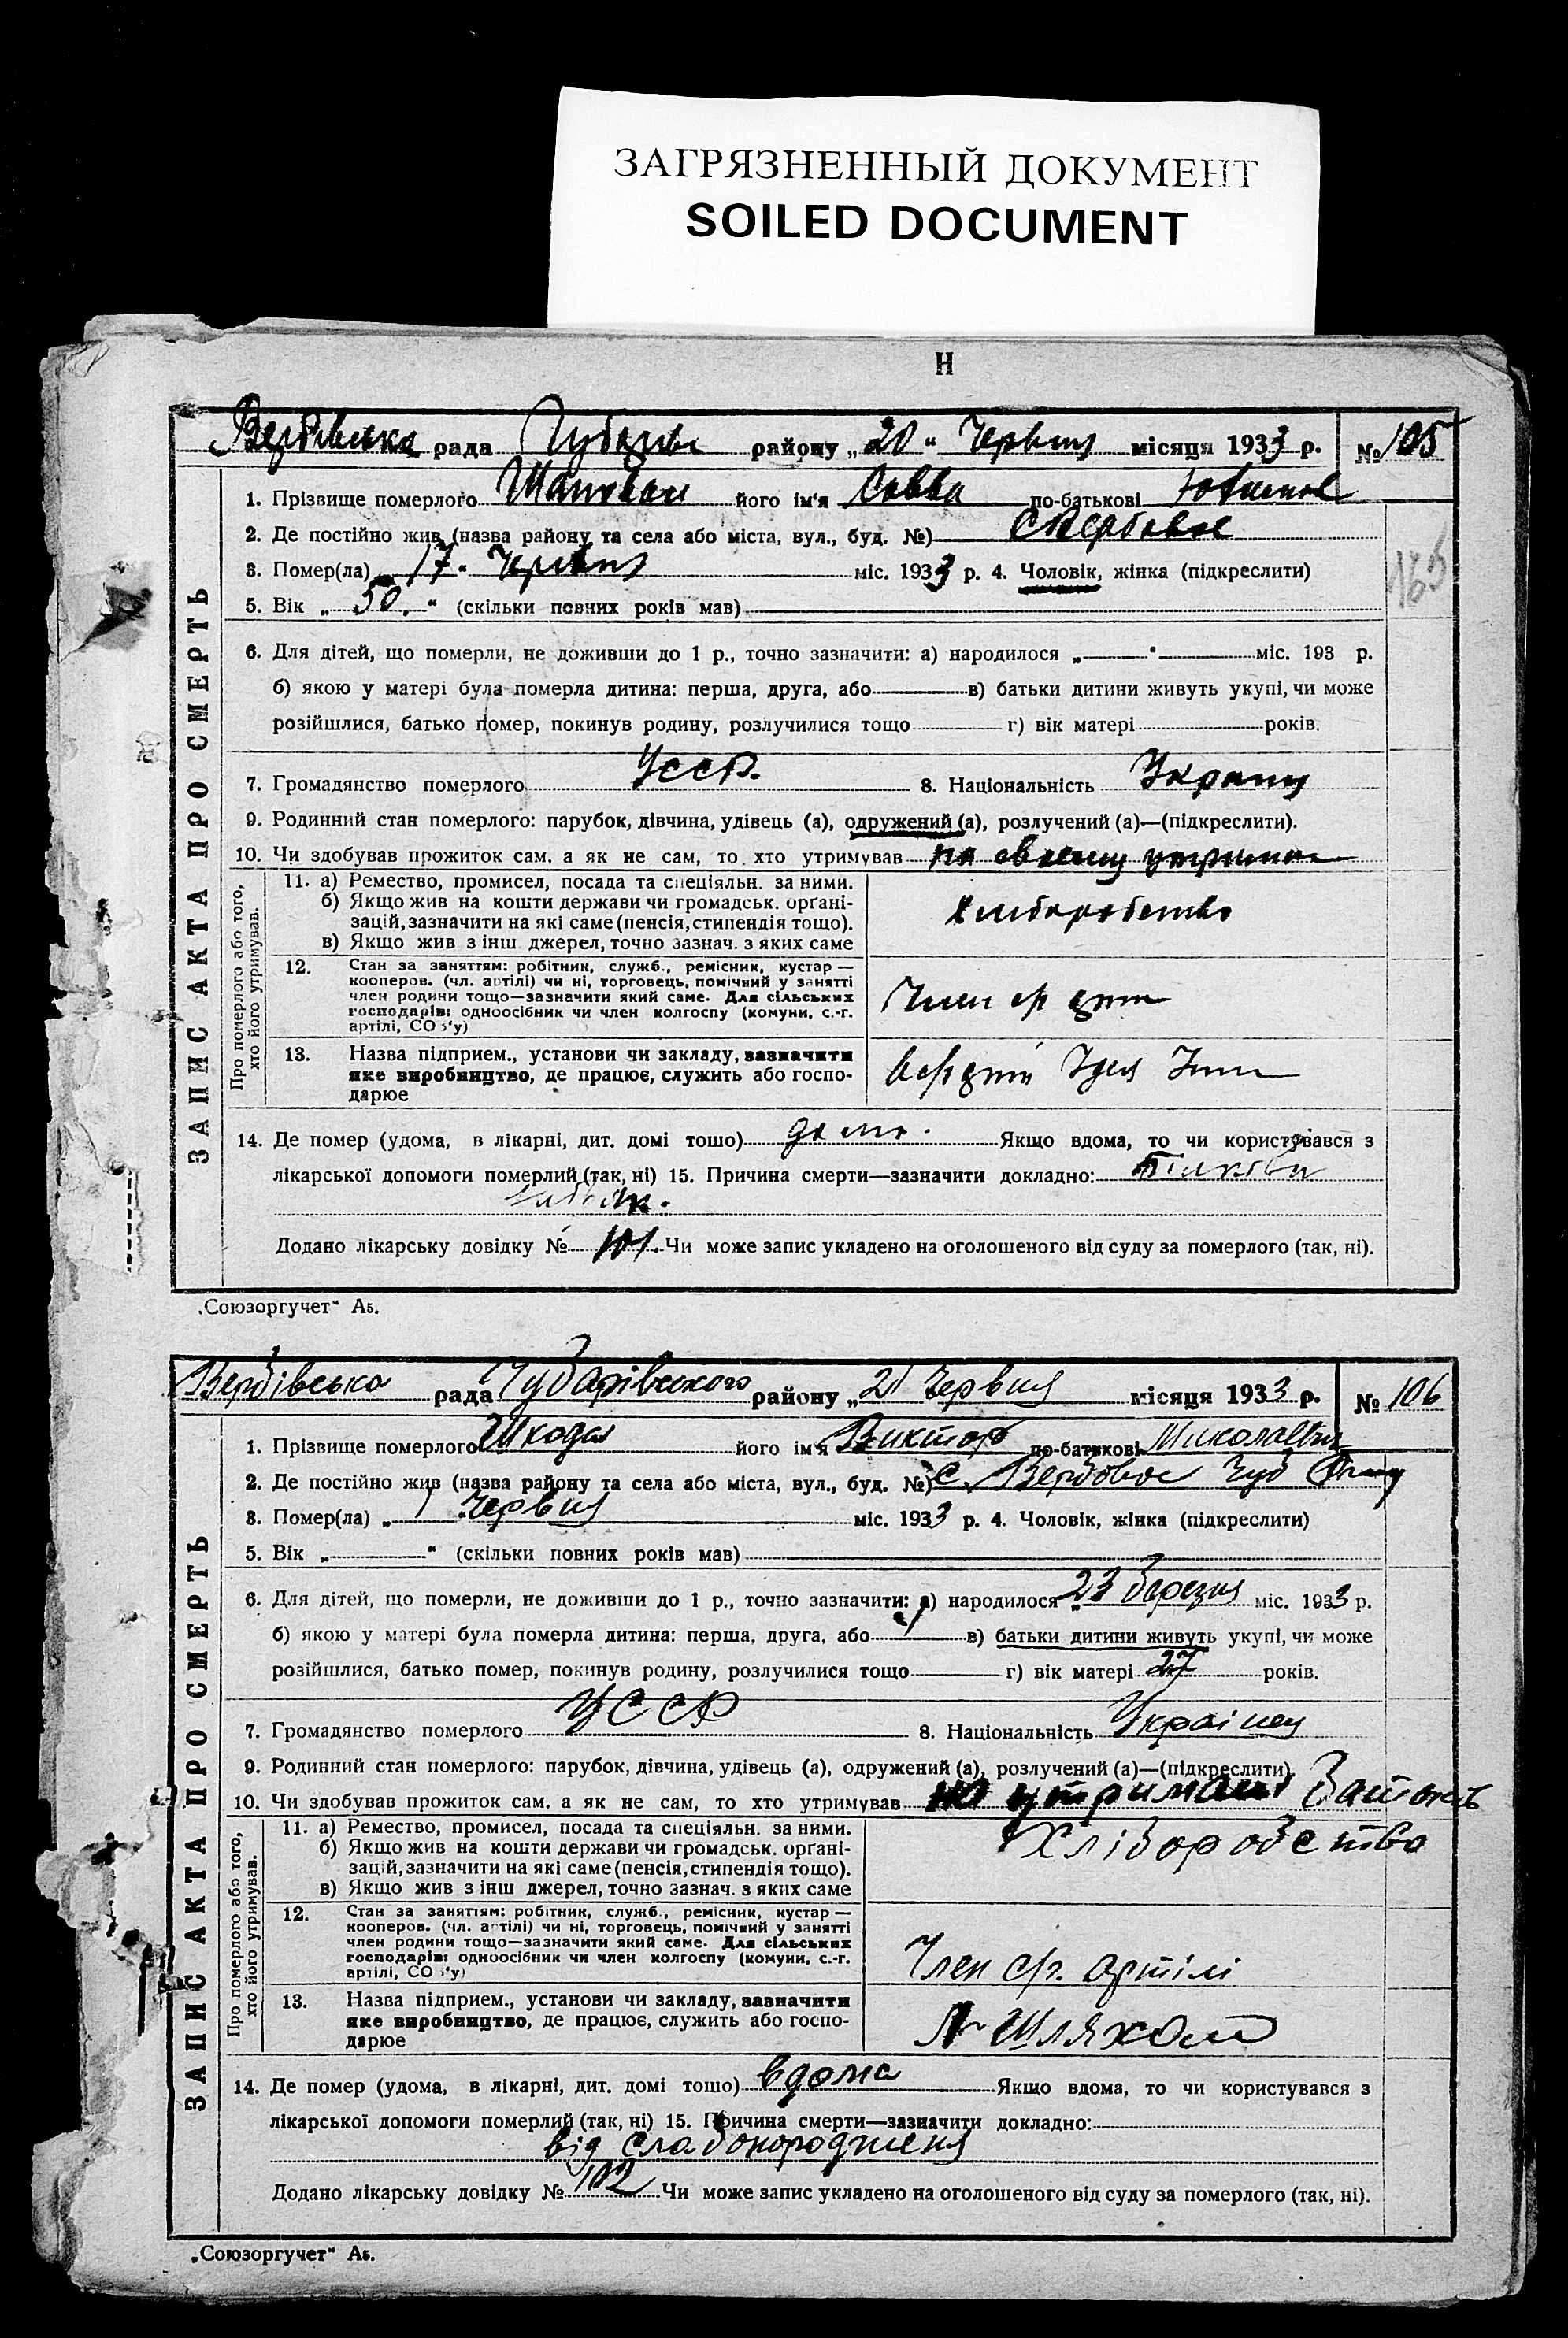 ЗАГРЯЗНЕННЫЙ ДОКУМЕНТ
SOILED DOCUMENT
Н
Вербівська рада району „20“ Червня місяця 1933 р. № 105
ЗАПИС АКТА ПРО СМЕРТЬ
1. Прізвище померлого його ім'я Савва по-батькові
2. Де постійно жив (назва району та села або міста, вул., буд. №)
3. Помер(ла) 17 Червня міс. 1933 р. 4. Чоловік, жінка (підкреслити)
5. Вік „50.“ (скільки повних років мав)
6. Для дітей, що померли, не доживши до 1 р., точно зазначити: а) народилося „—“— міс. 193 р.
б) якою у матері була померла дитина: перша, друга, або — в) батьки дитини живуть укупі, чи може
розійшлися, батько помер, покинув родину, розлучилися тощо — г) вік матері років.
7. Громадянство померлого УССР. 8. Національність
9. Родинний стан померлого: парубок, дівчина, удівець (а), одружений (а), розлучений (а)—(підкреслити).
10. Чи здобував прожиток сам, а як не сам, то хто утримував на своему
Про померлого або того, хто його утримував.
11. а) Ремество, промисел, посада та спеціяльн. за ними.
б) Якщо жив на кошти держави чи громадськ. органі-
зацій, зазначити на які саме (пенсія, стипендія тощо).
в) Якщо жив з інш джерел, точно зазнач. з яких саме
12. Стан за заняттям: робітник, служб., ремісник, кустар —
кооперов. (чл. артілі) чи ні, торговець, помічний у занятті
член родини тощо—зазначити який саме. Для сільських
господарів: одноосібник чи член колгоспу (комуни, с.-г.
артілі, СОЗ'у)
13. Назва підприєм., установи чи закладу, зазначити
яке виробництво, де працює, служить або госпо-
дарює
14. Де помер (удома, в лікарні, дит. домі тощо) дома. Якщо вдома, то чи користувався з
лікарської допомоги померлий (так, ні) 15. Причина смерти—зазначити докладно:
Додано лікарську довідку № 101. Чи може запис укладено на оголошеного від суду за померлого (так, ні).
„Союзоргучет“ А5.
Вербівська рада Чубарівського району „21 Червня місяця 1933 р. № 106
ЗАПИС АКТА ПРО СМЕРТЬ
1. Прізвище померлого Шкода його ім'я Виктор по-батькові
2. Де постійно жив (назва району та села або міста, вул., буд. №) с. Вербовое Чуб
3. Помер(ла) „1 Червня міс. 1933 р. 4. Чоловік, жінка (підкреслити)
5. Вік „—“ (скільки повних років мав)
6. Для дітей, що померли, не доживши до 1 р., точно зазначити: а) народилося „23 березня міс. 1933 р.
б) якою у матері була померла дитина: перша, друга, або — в) батьки дитини живуть укупі, чи може
розійшлися, батько помер, покинув родину, розлучилися тощо — г) вік матері 27 років.
7. Громадянство померлого УССР 8. Національність Українец
9. Родинний стан померлого: парубок, дівчина, удівець (а), одружений (а), розлучений (а)—(підкреслити).
10. Чи здобував прожиток сам, а як не сам, то хто утримував на
Про померлого або того, хто його утримував.
11. а) Ремество, промисел, посада та спеціяльн. за ними.
Хліборобство
б) Якщо жив на кошти держави чи громадськ. органі-
зацій, зазначити на які саме (пенсія, стипендія тощо).
в) Якщо жив з інш джерел, точно зазнач. з яких саме
12. Стан за заняттям: робітник, служб., ремісник, кустар —
кооперов. (чл. артілі) чи ні, торговець, помічний у занятті
член родини тощо—зазначити який саме. Для сільських
господарів: одноосібник чи член колгоспу (комуни, с.-г.
артілі, СОЗ'у)
Член с/г. артілі
13. Назва підприєм., установи чи закладу, зазначити
яке виробництво, де працює, служить або госпо-
дарює
Шляхом
14. Де помер (удома, в лікарні, дит. домі тощо) вдома Якщо вдома, то чи користувався з
лікарської допомоги померлий (так, ні) 15. Причина смерти—зазначити докладно:
від слабонородженя
Додано лікарську довідку № 102 Чи може запис укладено на оголошеного від суду за померлого (так, ні).
„Союзоргучет“ А5.